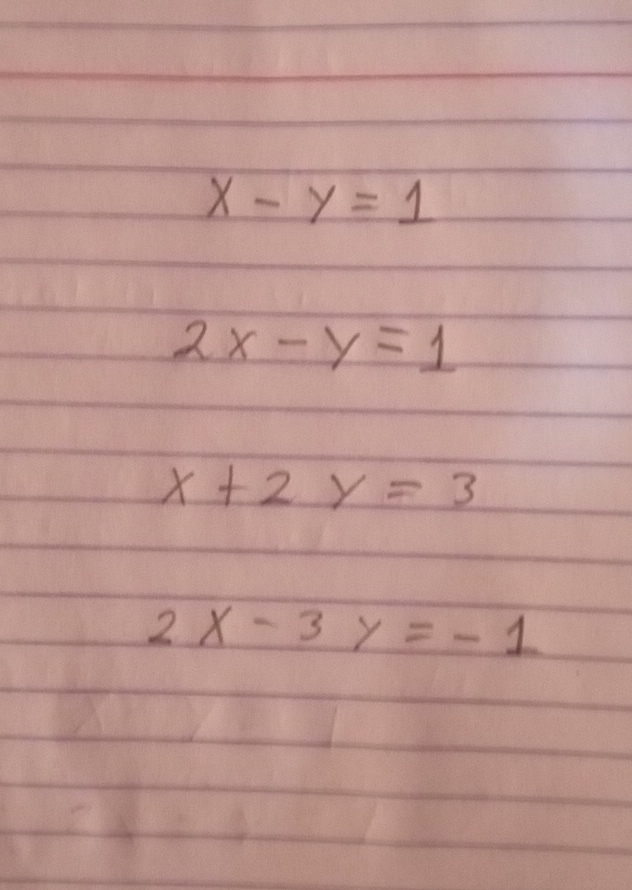 x - y = 1
2x - y = 1
x + 2y = 3
2x - 3y = -1